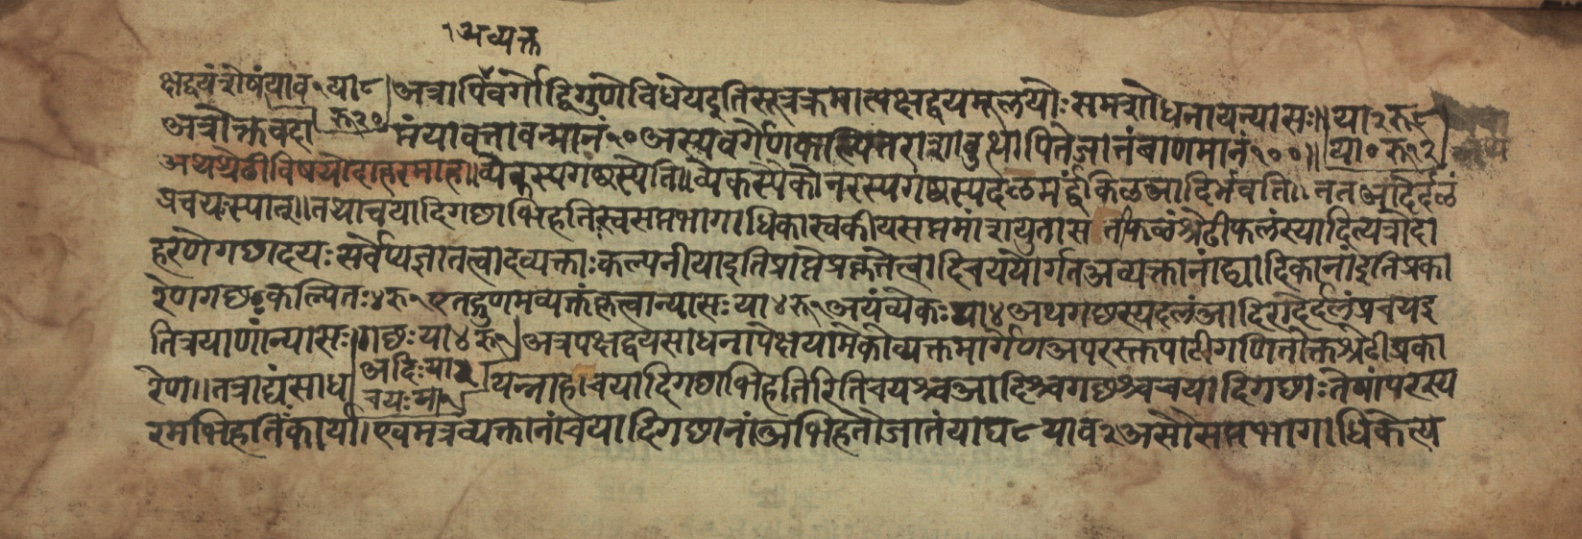 १अव्यक्त
क्षद्वयंशेषंयाव१या८ अत्रापिवर्गोद्विगुणोविधेयइतिसूत्रक्रमात्पक्षद्वयमूलयोःसमशोधनायन्यासः॥या२रू८
अत्रोक्तवदा रू२० मंयावत्तावन्मानं१०अस्यवर्गेणकल्पितराशावुत्थापितेजातंबाणमानं१००॥ या०रू१२
अथश्रेढीविषयोदाहरमाह॥व्येकस्यगछस्येति॥व्येकस्येकोनरस्यगछस्यदळमर्द्धंकिळआदिर्भवति॥ततआदिर्दळं
प्रचयःस्यात्॥तथाचयादिगछाभिहतिःस्वसप्तभागाधिकास्वकीयसप्तमांशयुतासतीफळंश्रेढीफलंस्यादित्यत्रोदा
हरणेगछादयःसर्वेप्यज्ञातत्वादव्यक्ताःकल्पनीयाइतिप्राप्तेप्रकृतेत्वादिचययोर्गतअव्यक्तानांद्यादिकानांइतिप्रका
रेणगछःकल्पितः४रू१एतद्गुणमव्यक्तंकृत्वान्यासःया४रू१अयंव्येकःया४अथगछस्यदलंआदिरादेर्दलंप्रचयइ
तित्रयाणांन्यासः गछःया४रू१ अत्रपक्षद्वयसाधनापेक्षयामेकोव्यक्तमार्गेणअपरस्क्तपाटीगणितोक्तश्रेढीप्रका
रेण॥तत्राद्यंसाध आदिःया२ चयःया१ यन्नाहाचयादिगछाभिहतिरितिचयश्चआदिश्चगछश्चचयादिगछाःतेषांपरस्प
रमभिहतिंकार्या।एवमत्रव्यक्तानांचयादिगछानांअभिहतौजातंयाघ८याव२असौसप्तभागाधिकेत्य